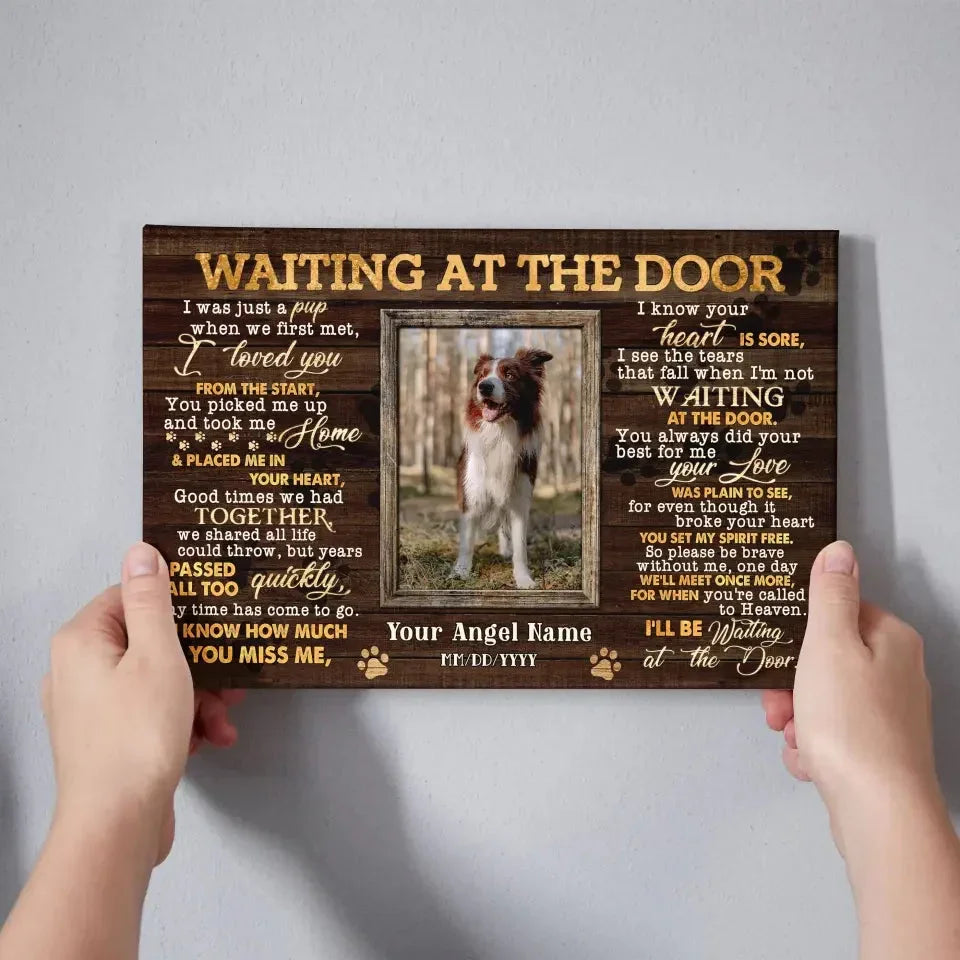 WAITING AT THE DOOR
I was just a pup
when we first met,
I loved you
FROM THE START,
You picked me up
and took me Home
& PLACED ME IN
YOUR HEART,
Good times we had
TOGETHER,
we shared all life
could throw, but years
PASSED
ALL TOO quickly,
my time has come to go.
I KNOW HOW MUCH
YOU MISS ME,
I know your
heart IS SORE,
I see the tears
that fall when I'm not
WAITING
AT THE DOOR.
You always did your
best for me
your Love
WAS PLAIN TO SEE,
for even though it
broke your heart
YOU SET MY SPIRIT FREE.
So please be brave
without me, one day
WE'LL MEET ONCE MORE,
FOR WHEN you're called
to Heaven.
I'LL BE Waiting
at the Door.
Your Angel Name
MM/DD/YYYY